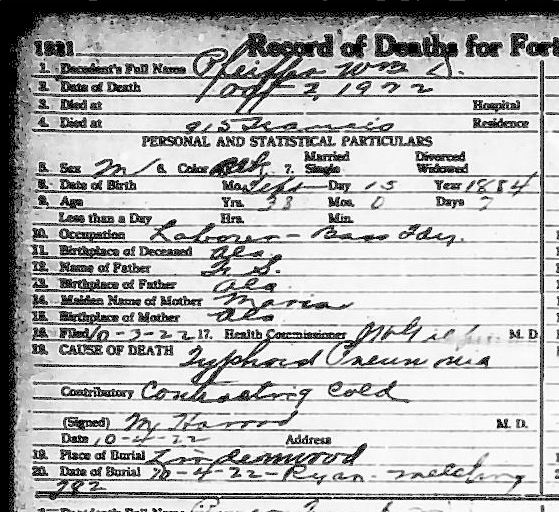 1921 Record of Deaths for Fort
1. Decedent's Full Name Pfeiffer Wm D.
2. Date of Death Oct 2, 1922
3. Died at Hospital
4. Died at 915 Francis Residence
PERSONAL AND STATISTICAL PARTICULARS
5. Sex M 6. Color 7. Married Single Divorced Widowed
8. Date of Birth Mo. Sept Day 15 Year 1884
9. Age Yrs. 38 Mos. 0 Days 7
Less than a Day Hrs. Min.
10. Occupation Laborer - Bass Fdy.
11. Birthplace of Deceased
12. Name of Father
13. Birthplace of Father
14. Maiden Name of Mother Maria
15. Birthplace of Mother
16. Filed 10-3-22 17. Health Commissioner M. D.
18. CAUSE OF DEATH Typhoid Pneumonia
Contributory Contracting Cold
(Signed) M. D.
Date 10-4-22 Address
19. Place of Burial Lindenwood
20. Date of Burial 10-4-22 - Ryan -
982